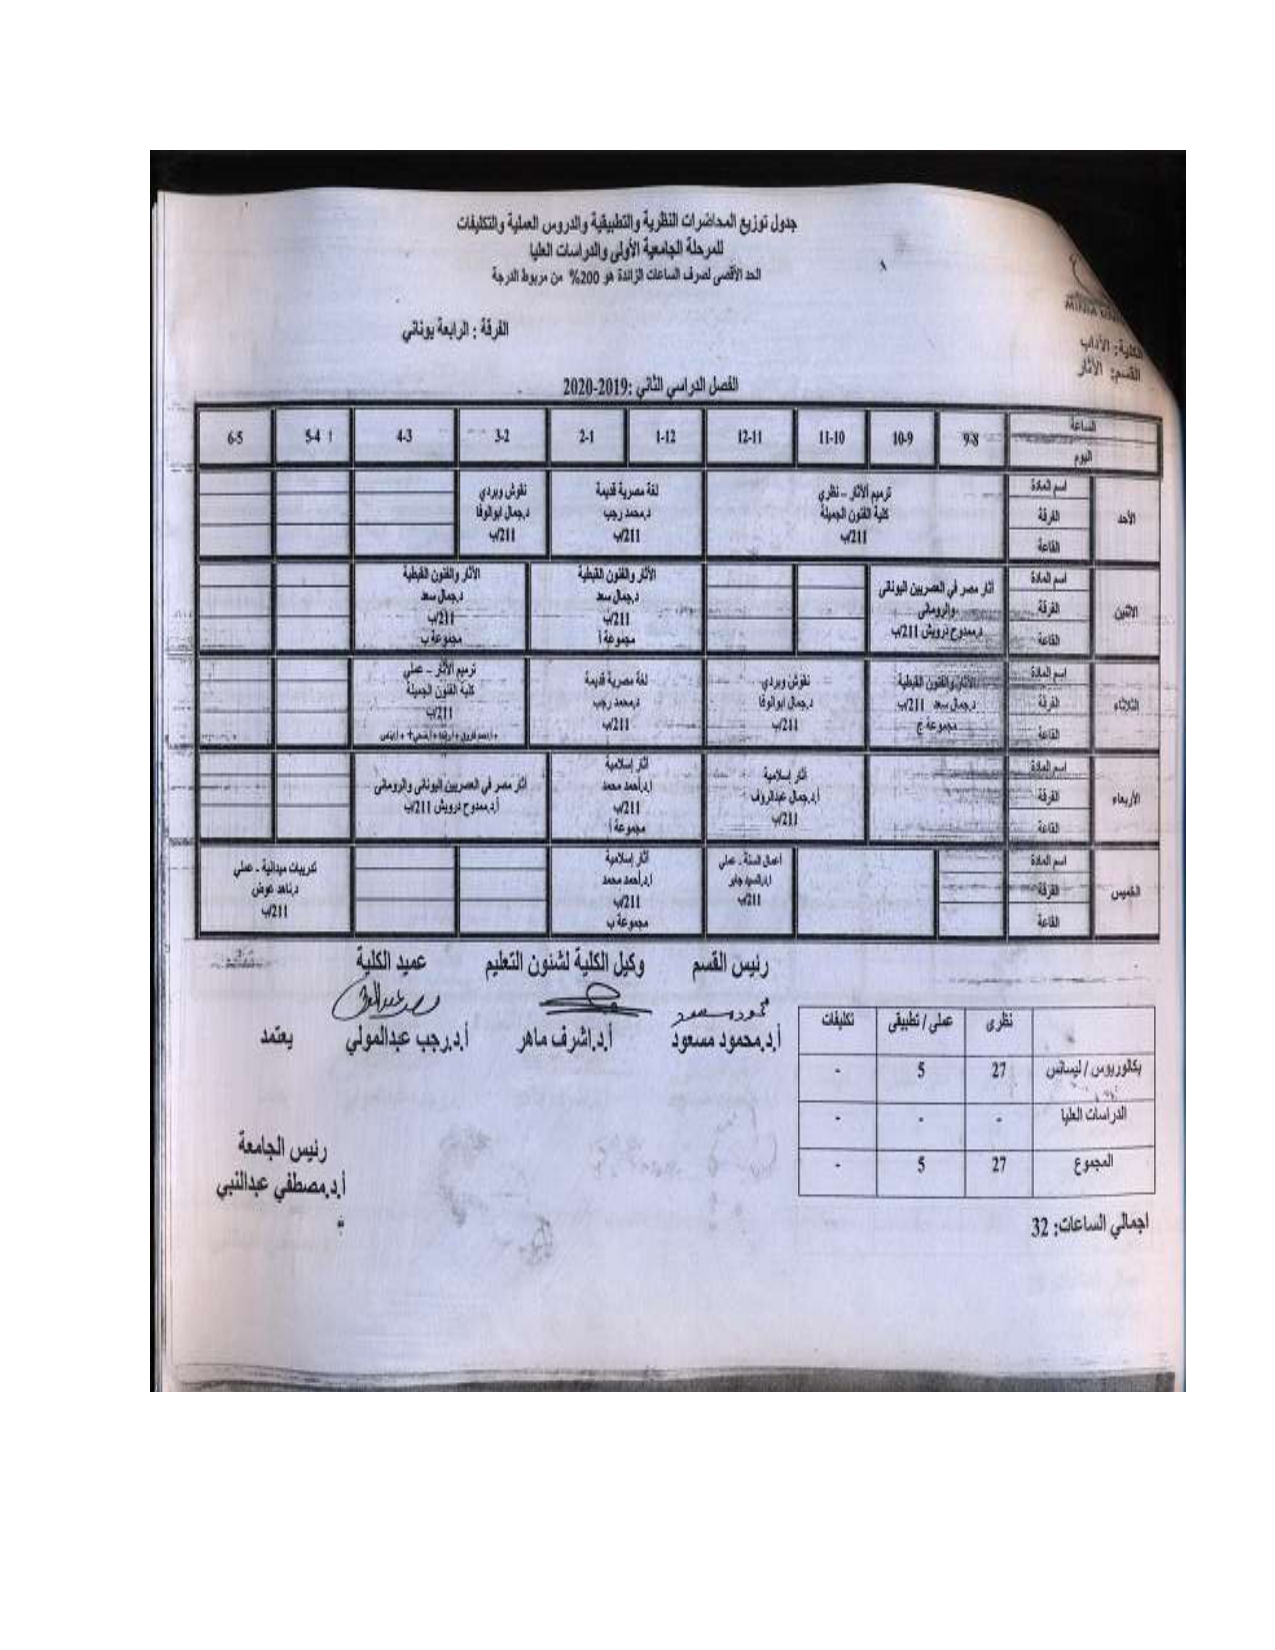 جدول توزيع المحاضرات النظرية والتطبيقية والدروس العملية والتكليفات
للمرحلة الجامعية الأولى والدراسات العليا
الحد الأقصى لصرف الساعات الزائدة هو 200% من مربوط الدرجة
الكلية: الآداب
القسم: الآثار
الفرقة : الرابعة يوناني
الفصل الدراسي الثاني :2019-2020
الساعة
اليوم
9-8 10-9 11-10 12-11 1-12 2-1 3-2 4-3 5-4 6-5
الأحد
اسم المادة
الفرقة
القاعة
ترميم الآثار – نظري
كلية الفنون الجميلة
211/ب
لغة مصرية قديمة
د.محمد رجب
211/ب
نقوش وبردي
د.جمال ابوالوفا
211/ب
الاثنين
اسم المادة
الفرقة
القاعة
آثار مصر في العصريين اليوناني
والروماني
د.ممدوح درويش 211/ب
الآثار والفنون القبطية
د.جمال سعد
211/ب
مجموعة أ
الآثار والفنون القبطية
د.جمال سعد
211/ب
مجموعة ب
الثلاثاء
اسم المادة
الفرقة
القاعة
الآثار والفنون القبطية
د.جمال سعد 211/ب
مجموعة ج
نقوش وبردي
د.جمال ابوالوفا
211/ب
لغة مصرية قديمة
د.محمد رجب
211/ب
ترميم الآثار – عملي
كلية الفنون الجميلة
211/ب
الأربعاء
اسم المادة
الفرقة
القاعة
آثار إسلامية
أ.د.جمال عبدالروف
211/ب
آثار إسلامية
ا.د.أحمد محمد
211/ب
مجموعة أ
آثار مصر في العصريين اليوناني والروماني
أ.د.ممدوح درويش 211/ب
الخميس
اسم المادة
الفرقة
القاعة
أعمال السنة - عملي
ا.د.السيد جابر
211/ب
آثار إسلامية
ا.د.أحمد محمد
211/ب
مجموعة ب
تدريبات ميدانية - عملي
د.ناهد عوض
211/ب
رئيس القسم وكيل الكلية لشئون التعليم عميد الكلية
أ.د.محمود مسعود أ.د.اشرف ماهر أ.د.رجب عبدالمولي يعتمد
رئيس الجامعة
أ.د.مصطفي عبدالنبي
نظرى عملى / تطبيقى تكليفات
بكالوريوس / ليسانس 27 5 -
الدراسات العليا - - -
المجموع 27 5 -
اجمالي الساعات: 32